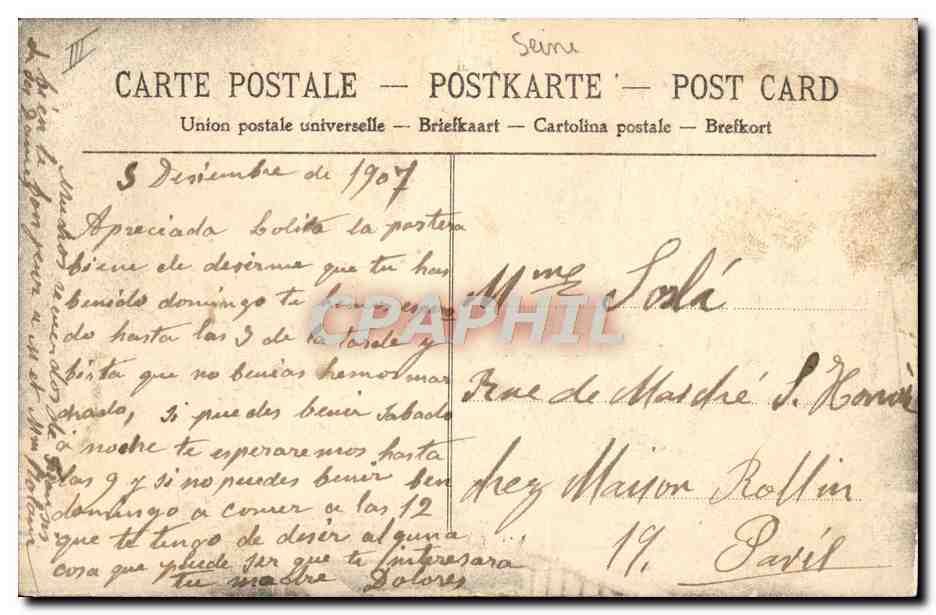 III
Seine
CARTE POSTALE — POSTKARTE — POST CARD
Union postale universelle — Briefkaart — Cartolina postale — Brefkort
5 Desiembre de 1907
Apreciada Lolita la portera
biene de desirme que tu has
benido domingo te hemos espera
do hasta las 3 de la tarde y
bista que no benias hemos mar
chado, si puedes benir sabado
a noche te esperaremos hasta
las 9 y si no puedes benir ben
domingo a comer a las 12
que te tengo de desir alguna
cosa que puede ser que te interesara
tu madre Dolores
Muchos recuerdos de
bien le bonjour a M et Mme
Mme Solá
Rue de Marché S. Honoré
chez Maison Rollin
19. Paris
CPAPHIL